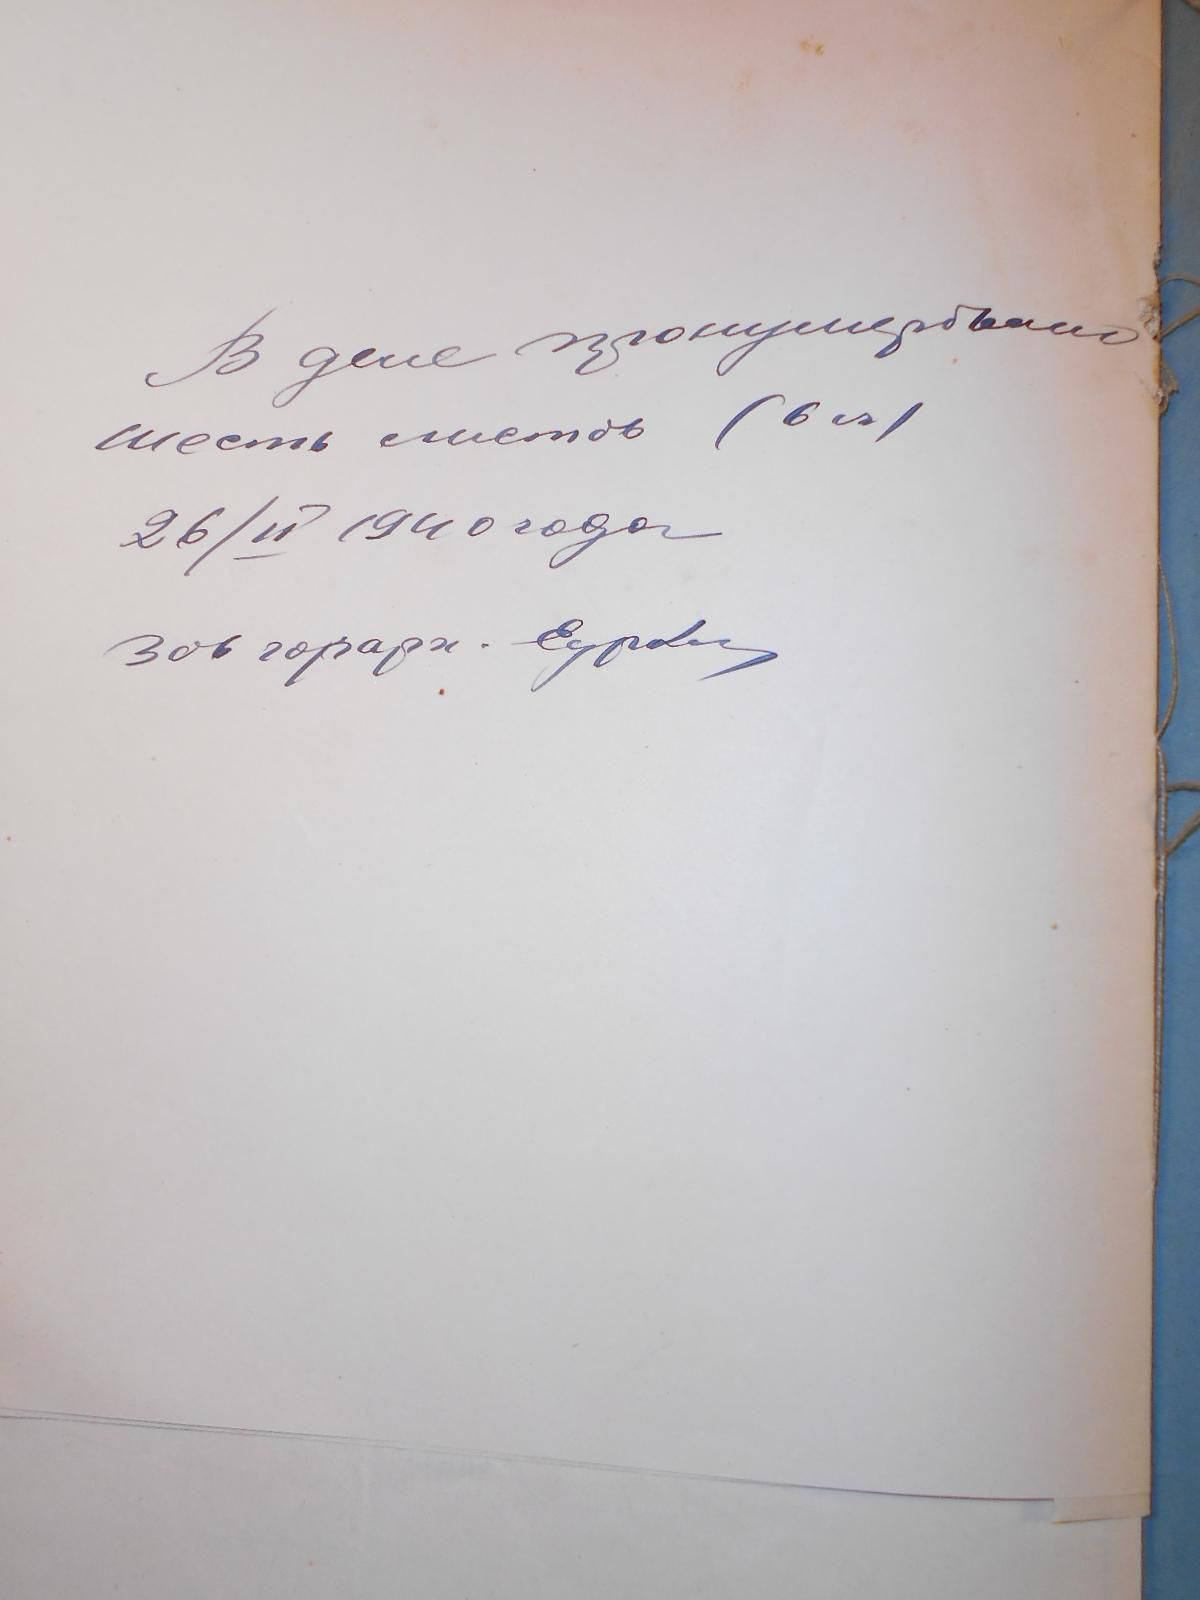 В деле пронумеровано
шесть листов (6 л)
26/II 1940 года
Зав горарх.